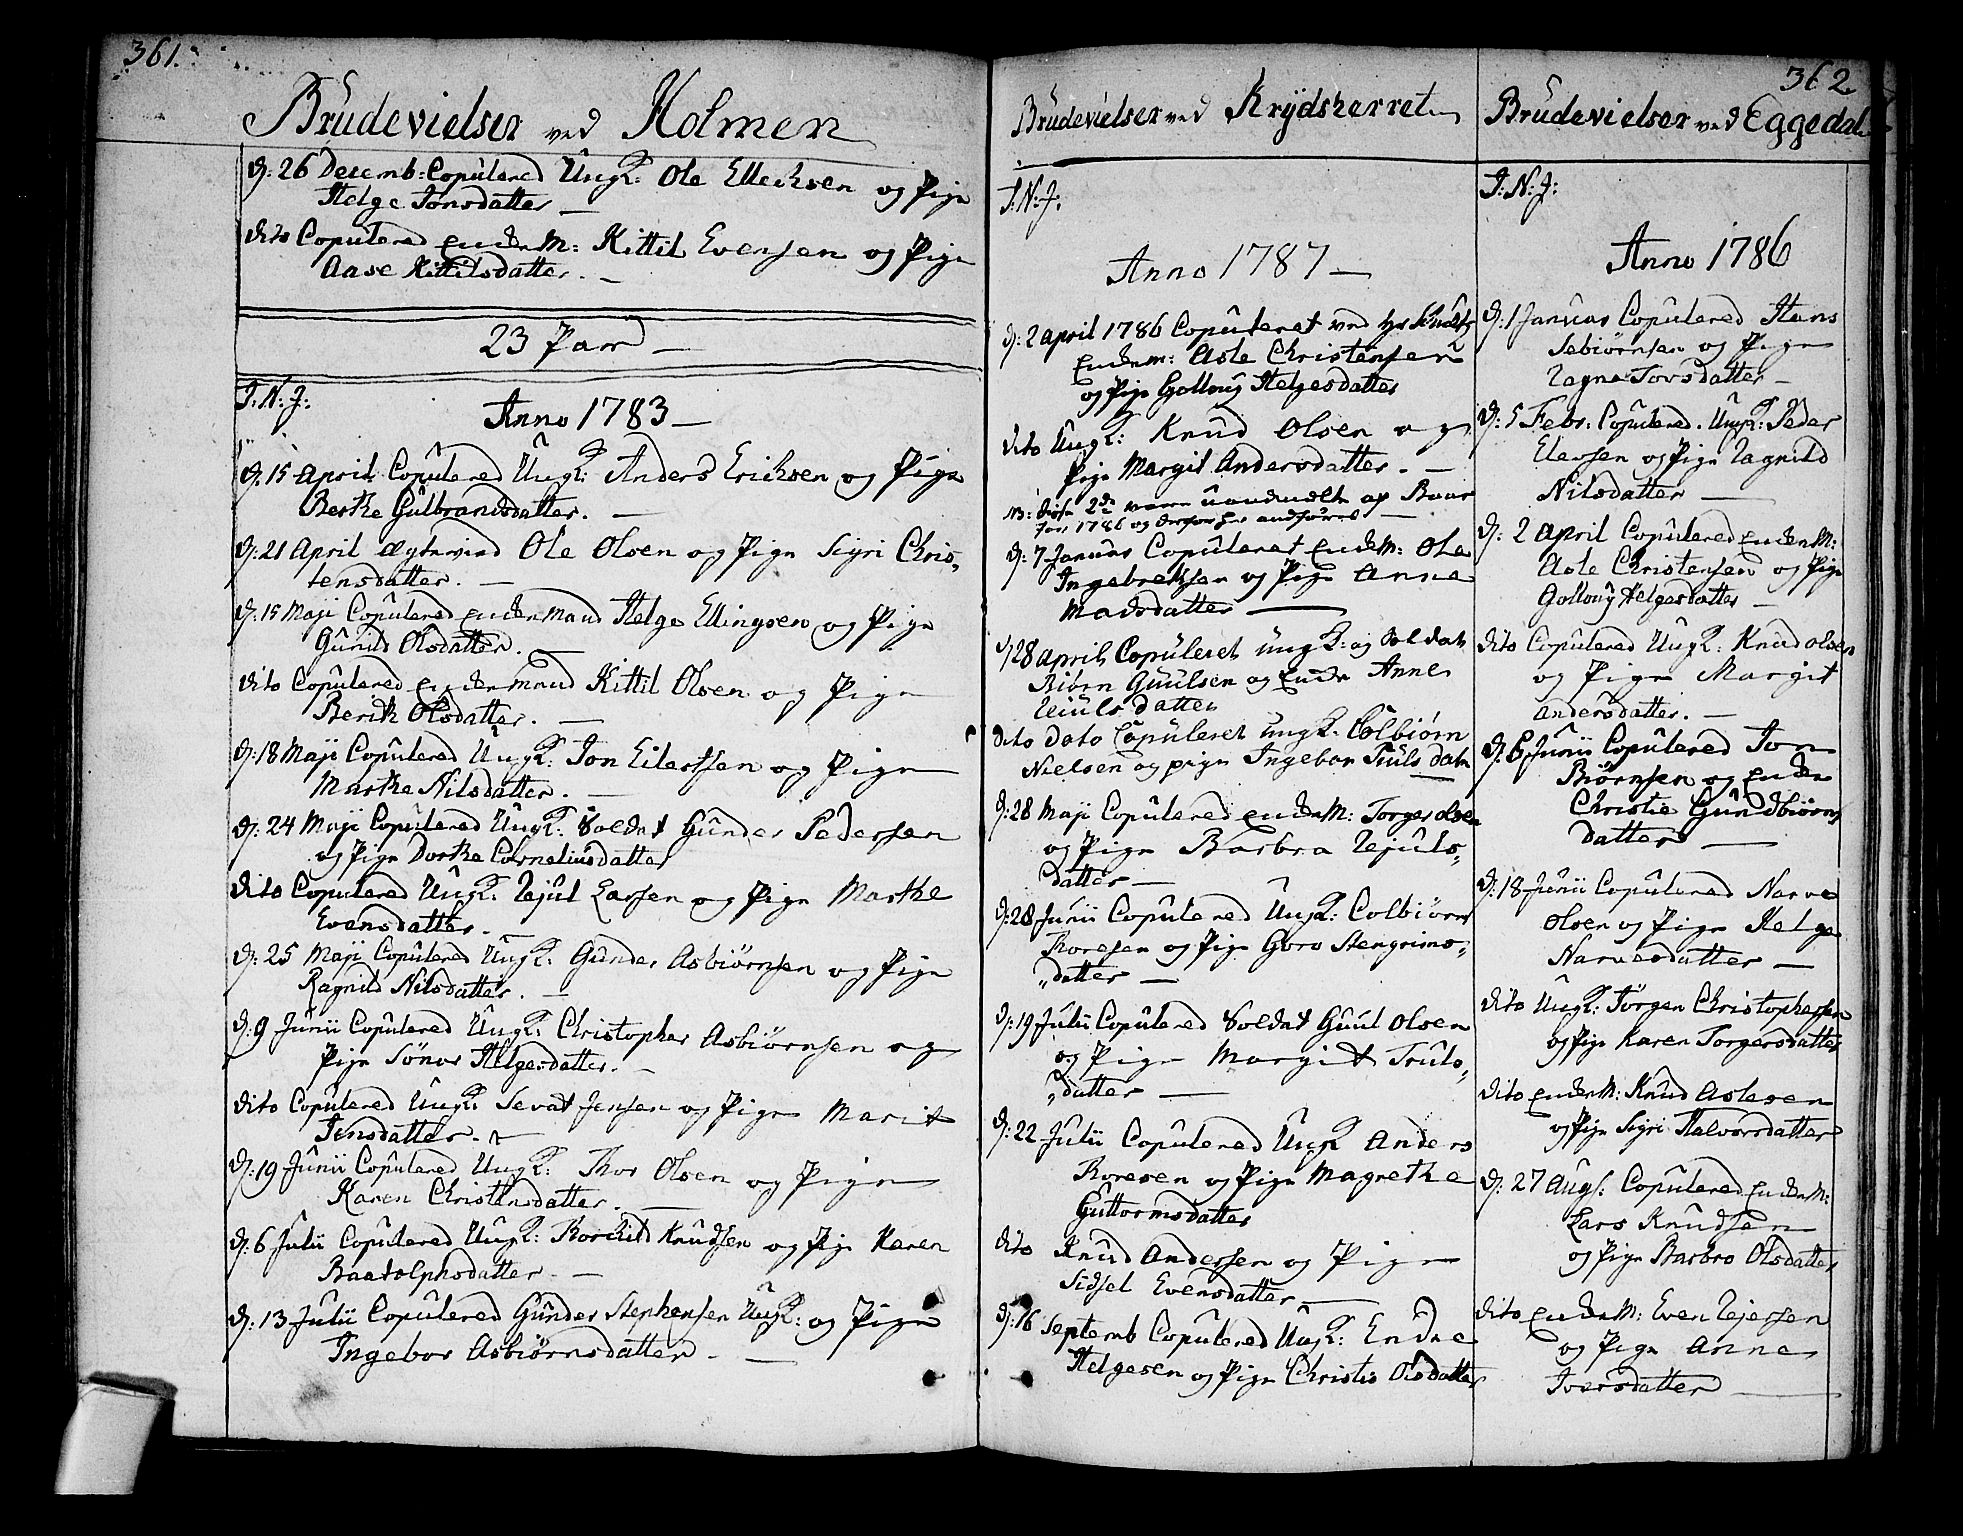 361.
Brüdevielser ved Holmen
d: 26 Decemb: Copülered Üngk: Ole Ellechsen og Pige
Helge Jonsdatter —
dito Copülered EnckeM: Kittil Evensen og Pige
Aase Kittilsdatter. —
23 Par —
J. N. J.
Anno 1783 —
d: 15 April Copülered Üngk: Anders Erichsen og Pige
Berthe Gülbrandsdatter. —
d: 21 April Ole Olsen og Pige Sigri Chris-
tensdatter. —
d: 15 Maji Copülered Helge Ellingsen og Pige
Günild Olsdatter. —
dito Copülered Kittil Olsen og Pige
Berith Olsdatter. —
d: 18 Maji Copülered Üngk: Jon Eilertsen og Pige
Marthe Nilsdatter. —
d: 24 Maji Copülered Üngk: Soldat Günder Pedersen
og Pige Dorthe Cornelinsdatter
dito Copülered Üngk: Tjül Larsen og Pige Marthe
Evensdatter. —
d: 25 Maji Copülered Üngk: Günder Asbiörnsen og Pige
Ragnild Nilsdatter. —
d: 9 Junii Copülered Üngk: Christopher Asbiörnsen og
Pige Sönov Helgesdatter. —
dito Copülered Üngk: Sevat Jensen og Pige Marit
Jensdatter. —
d: 19 Junii Copülered Üngk: Thor Olsen og Pige
Karen Christensdatter. —
d: 6 Julii Copülered Üngk: Borchild Knüdsen og Pige Karen
Baadolphsdatter. —
d: 13 Julii Copülered Günder Stephensen Üngk: og Pige
Ingebor Asbiörnsdatter. —
362
Brüdevielser ved Krydsherret
J. N. J.
Anno 1787 —
d: 2 April 1786 Copüleret ved
Asle Christensen
og Pige Gollaug Helgesdatter
dito Üngk: Knüd Olsen og
Pige Margit Andersdatter. —
NB: disse 2de
1786 og
d: 7 Januar Copüleret EnkeM: Ole
Ingebrektsen og Pige Anne
Madsdatter —
d 28 April Copüleret üngk: og Soldat
Güülsen og Enke Anne
datter
dito dato Copüleret üngk: Colbiørn
Nielsen og pige Ingebor Trüls dater
d: 28 Maji Copülered EnkeM: Torger Olsen
og Pige Barbra Tjüls-
datter —
d: 28 Junii Copülered Üngk: Colbiörn
Thoresen og Pige Goro Stengrims-
datter —
d: 19 Julii Copülered Soldat Guul Olsen
og Pige Margit Truls-
datter —
d: 22 Julii Copülered Üngk Anders
Thoresen og Pige Magrethe
Güttormsdatter
dito Knüd Andersen og Pige
Sidsel Evensdatter —
d: 16 Septemb Copülered Üngk: Endre
Helgesen og Pige Christi Olsdatter
Brüdevielser ved Eggedal
J: N: J:
Anno 1786
d: 1 Januar Copülered Hans
Sebiörnsen og Pige
Ragne Torsdatter —
d: 5 Febr: Copülered. Üngk: Peder
Elersen og Pige Ragnild
Nilsdatter —
d: 2 April Copülered EnkeM:
Asle Christensen og Pige
Gollaug Helgesdatter —
dito Copülered Üngk: Knüd Olsen
og Pige Margit
Andersdatter. —
d: 6 Junii Copülered Jon
Biörnsen og Enke
Christie Gündbiörns
datter —
d: 18 Junii Copülered Narve
Olsen og Pige Helge
Narvesdatter —
dito Üngk: Jörgen Christophersen
og Pige Karen Torgersdatter
dito EnkeM: Knüd Aslesen
og Pige Sigri Halvorsdatter
d: 27 Augs: Copülered EnkeM:
Lars Knüdsen
og Pige Barbro Olsdatter
dito EnkeM: Even Rejersen
og Pige Anne
Iversdatter —